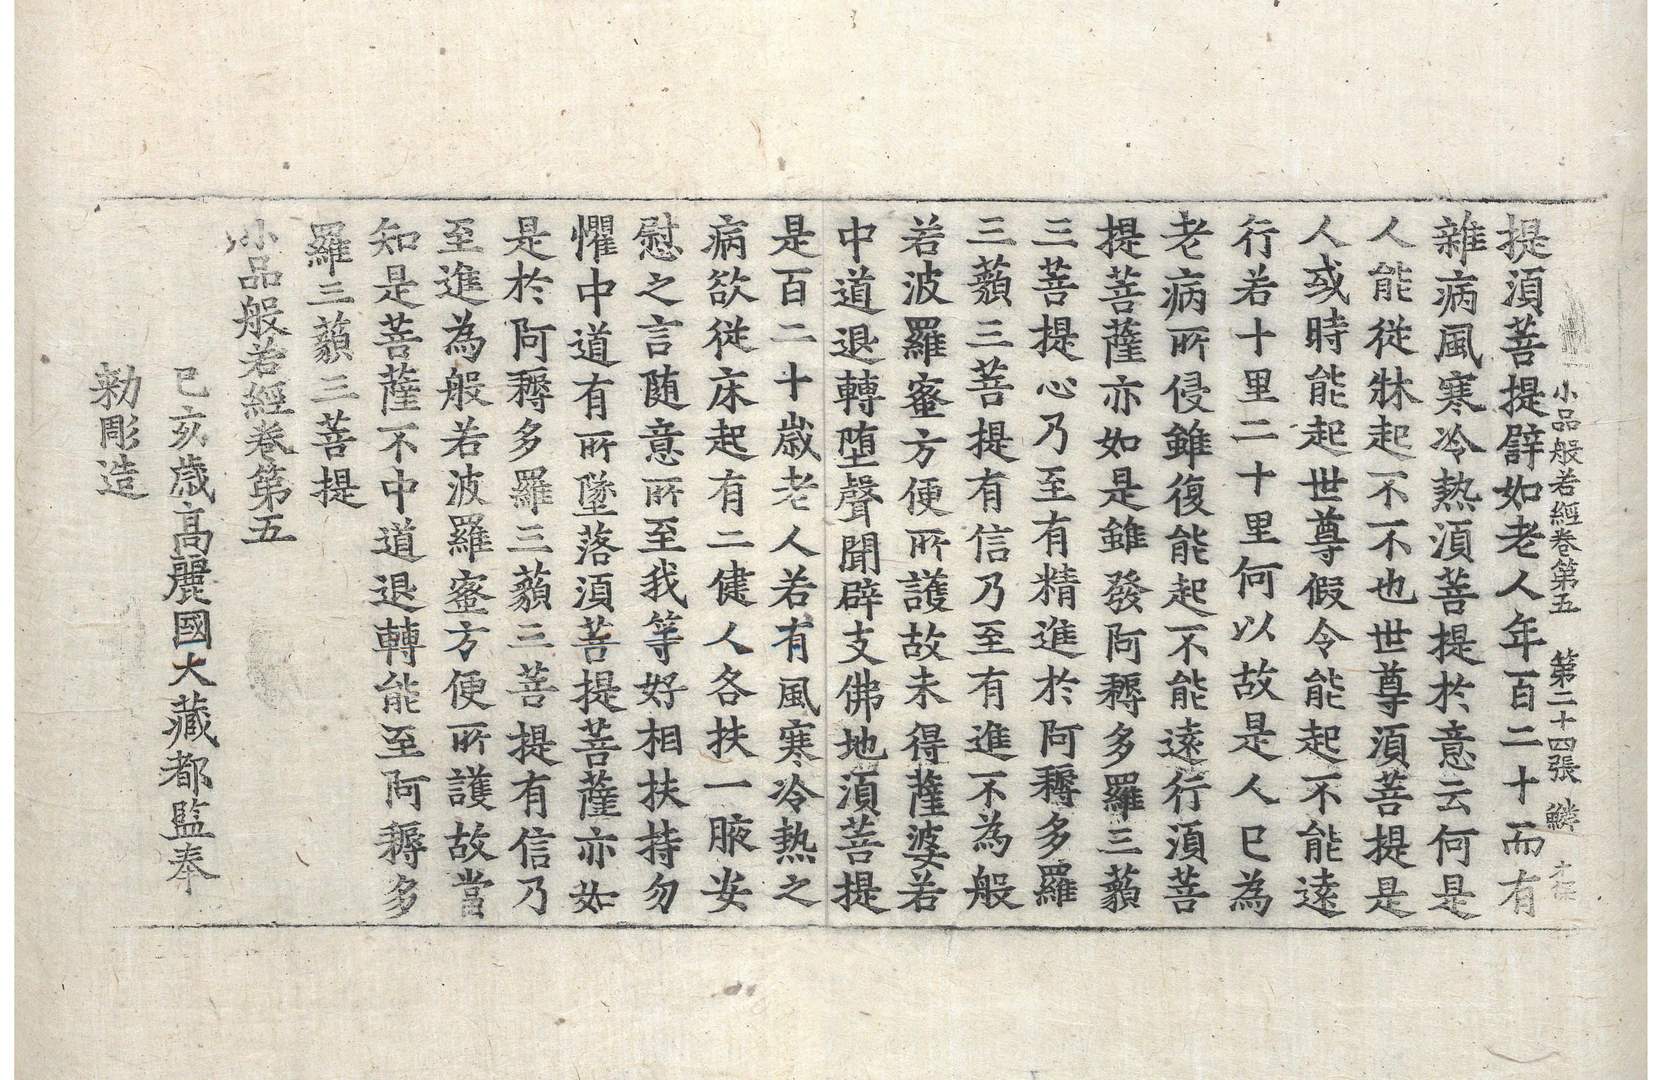 小品般若經卷第五　第二十四張　鱗
提湏菩提譬如老人年百二十而有
雜病風寒冷熱湏菩提於意云何是
人能從牀起不不也世尊湏菩提是
人或時能起世尊假令能起不能遠
行若十里二十里何以故是人已為
老病所侵雖復能起不能遠行湏菩
提菩薩亦如是雖發阿耨多羅三藐
三菩提心乃至有精進於阿耨多羅
三藐三菩提有信乃至有進不為般
若波羅蜜方便所護故未得薩婆若
中道退轉墮聲聞辟支佛地湏菩提
是百二十歲老人若有風寒冷熱之
病欲從床起有二健人各扶一腋安
慰之言隨意所至我等好相扶持勿
懼中道有所墜落湏菩提菩薩亦如
是於阿耨多羅三藐三菩提有信乃
至進為般若波羅蜜方便所護故當
知是菩薩不中道退轉能至阿耨多
羅三藐三菩提
小品般若經卷第五
己亥歲高麗國大藏都監奉
勅彫造